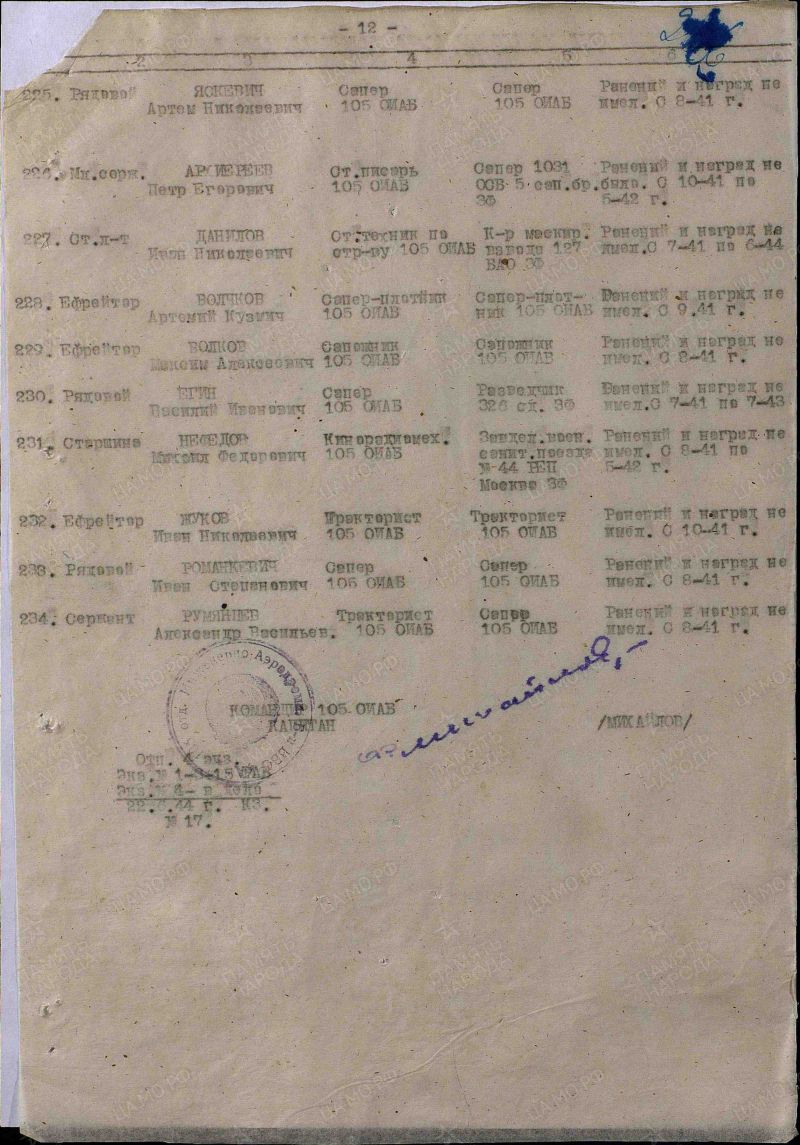 - 12 -
2 3 4 5 6
225. Рядовой ЯСКЕВИЧ Сапер Сапер Ранений и наград не
Артем Николаевич 105 ОИАБ 105 ОИАБ имел. С 8-41 г.
226. Мл.серж. АРХИЕРЕЕВ Ст.писарь Сапер 1031 Ранений и наград не
Петр Егорович 105 ОИАБ ОСБ 5 сап.бр. было. С 10-41 по
ЗФ 5-42 г.
227. Ст.л-т ДАНИЛОВ Ст.техник по К-р маскир. Ранений и наград не
Иван Николаевич стр-ву 105 ОИАБ взвода 127 имел.С 7-41 по 6-44
БАО ЗФ
228. Ефрейтор ВОЛЧКОВ Сапер-плотник Сапер-плот- Ранений и наград не
Артемий Кузмич 105 ОИАБ ник 105 ОИАБ имел. С 9.41 г.
229. Ефрейтор ВОЛКОВ Сапожник Сапожник Ранений и наград не
Максим Алексеевич 105 ОИАБ 105 ОИАБ имел. С 8-41 г.
230. Рядовой ЕГИН Сапер Разведчик Ранений и наград не
Василий Иванович 105 ОИАБ 326 сд. ЗФ имел.С 7-41 по 7-43
231. Старшина НЕФЕДОВ Кинорадиомех. Завдел.воен. Ранений и наград не
Михаил Федорович 105 ОИАБ санит.поезда имел. С 8-41 по
№ 44 5-42 г.
Москва ЗФ
232. Ефрейтор ЖУКОВ Тракторист Тракторист Ранений и наград не
Иван Николаевич 105 ОИАБ 105 ОИАБ имел. С 10-41 г.
233. Рядовой РОМАНКЕВИЧ Сапер Сапер Ранений и наград не
Иван Степанович 105 ОИАБ 105 ОИАБ имел. С 8-41 г.
234. Сержант РУМЯНЦЕВ Тракторист Сапер Ранений и наград не
Александр Васильев. 105 ОИАБ 105 ОИАБ имел. С 8-41 г.
КОМАНДИР 105 ОИАБ
КАПИТАН /МИХАЙЛОВ/
Отп. 4 экз.
Экз.№ 1-3-15
Экз.№ 4- в дело
22.6.44 г. КЗ.
№ 17.